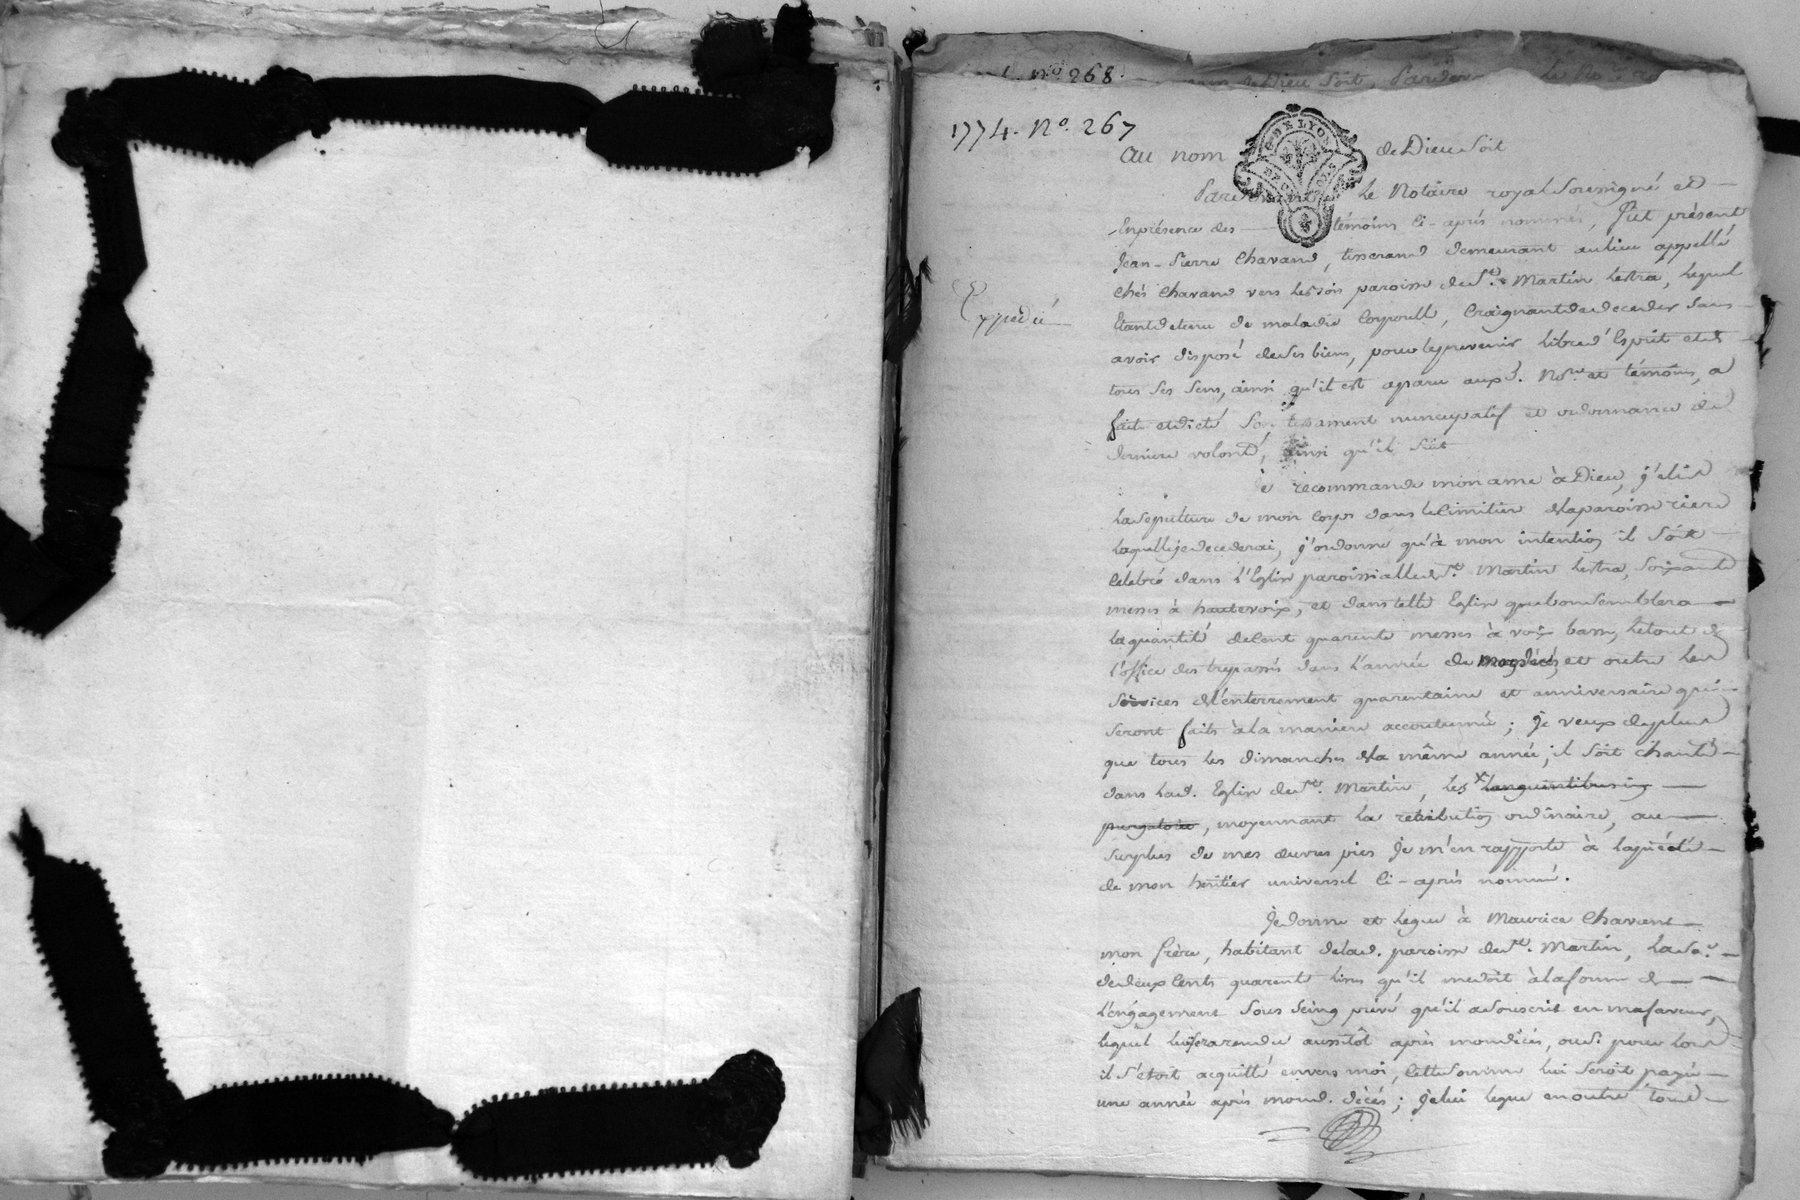 nº 268.
de Dieu soit, Pardevant le
1774. Nº. 267
Au nom de Dieu soit
G. DE LYON
Pardevant le Notaire royal soussigné et
En présence des témoins ci-après nommés, fut présent
Jean-Pierre Chavand, tisserand demeurant au lieu appellé
Chés Chavand vers paroisse de St. Martin Lestra, lequel
Etant detenu de maladie corporelle, craignant de deceder sans
avoir disposé de ses biens, pour le prevenir libre d'esprit et de
tous ses sens, ainsi qu'il est aparu auxd. Nore. et témoins, a
fait et dicté son testament nuncupatif et ordonnance de
derniere volonté, ainsi qu'il suit
Je recommande mon ame à Dieu, j'elis
la sepulture de mon corps dans le cimitier de la paroisse riere
laquelle je decederai, j'ordonne qu'à mon intention il soit
celebré dans l'Eglise paroissialle de St. Martin Lestra, soixante
messes à haute voix, et dans telle Eglise que bon semblera
la quantité de cent quarente messes à voix basse, le tout de
l'office des trepassés dans l'année de mon décès, et outre les
services de l'enterrement quarentaine et anniversaire qui
seront faits à la maniere accoutumée; je veux de plus
que tous les dimanches de la même année, il soit chanté
dans lad. Eglise de St. Martin, les x languentibus in
purgatorio, moyennant la retribution ordinaire, au
surplus de mes œuvres pies je m'en rapporte à la piété
de mon heritier universel ci-après nommé.
Je donne et legue à Maurice Chavand
mon frère, habitant de lad. paroisse de St. Martin, la so.e
de deux cents quarente livres qu'il me doit à la forme de
l'engagement sous seing privé qu'il a souscrit en ma faveur,
lequel lui sera rendu aussitôt après mon décès, ou si pour lors
il s'etoit acquitté envers moi, cette somme lui seroit payée
une année après mond. décés; je lui legue en outre tous
Expedié